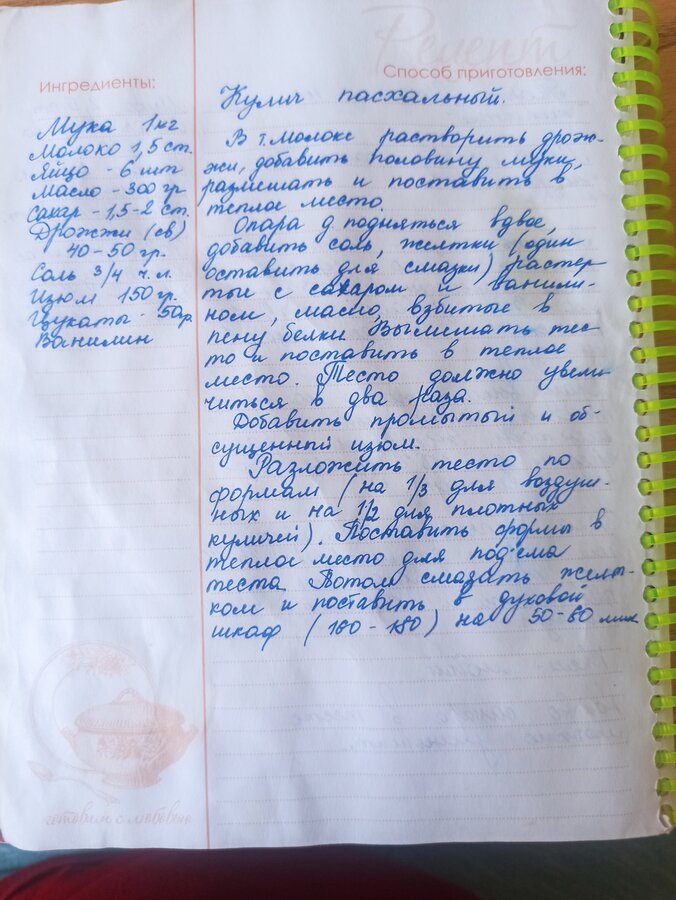 Рецепт
Ингредиенты:
Способ приготовления:
Кулич пасхальный.
Мука 1кг
Молоко 1,5 ст.
Яйцо - 6 шт
Масло - 300 гр
Сахар - 1,5-2 ст.
Дрожжи (св)
40-50 гр.
Соль 3/4 ч.л.
Изюм 150 гр.
Цукаты - 50гр.
Ванилин
В т.молоке растворить дрож-
жи, добавить половину муки,
размешать и поставить в
теплое место.
Опара д.подняться вдвое,
добавить соль, желтки (один
оставить для смазки) растер-
тые с сахаром и ванили-
ном, масло, взбитые в
пену белки. Вымешать тес-
то и поставить в теплое
место. Тесто должно увели-
читься в два раза.
Добавить промытый и об-
сущенный изюм.
Разложить тесто по
формам (на 1/3 для воздуш-
ных и на 1/2 для плотных
куличей). Поставить формы в
теплое место для подъема
теста. Потом смазать желт-
ком и поставить в духовой
шкаф (160-180) на 50-60 мин
готовим с любовью